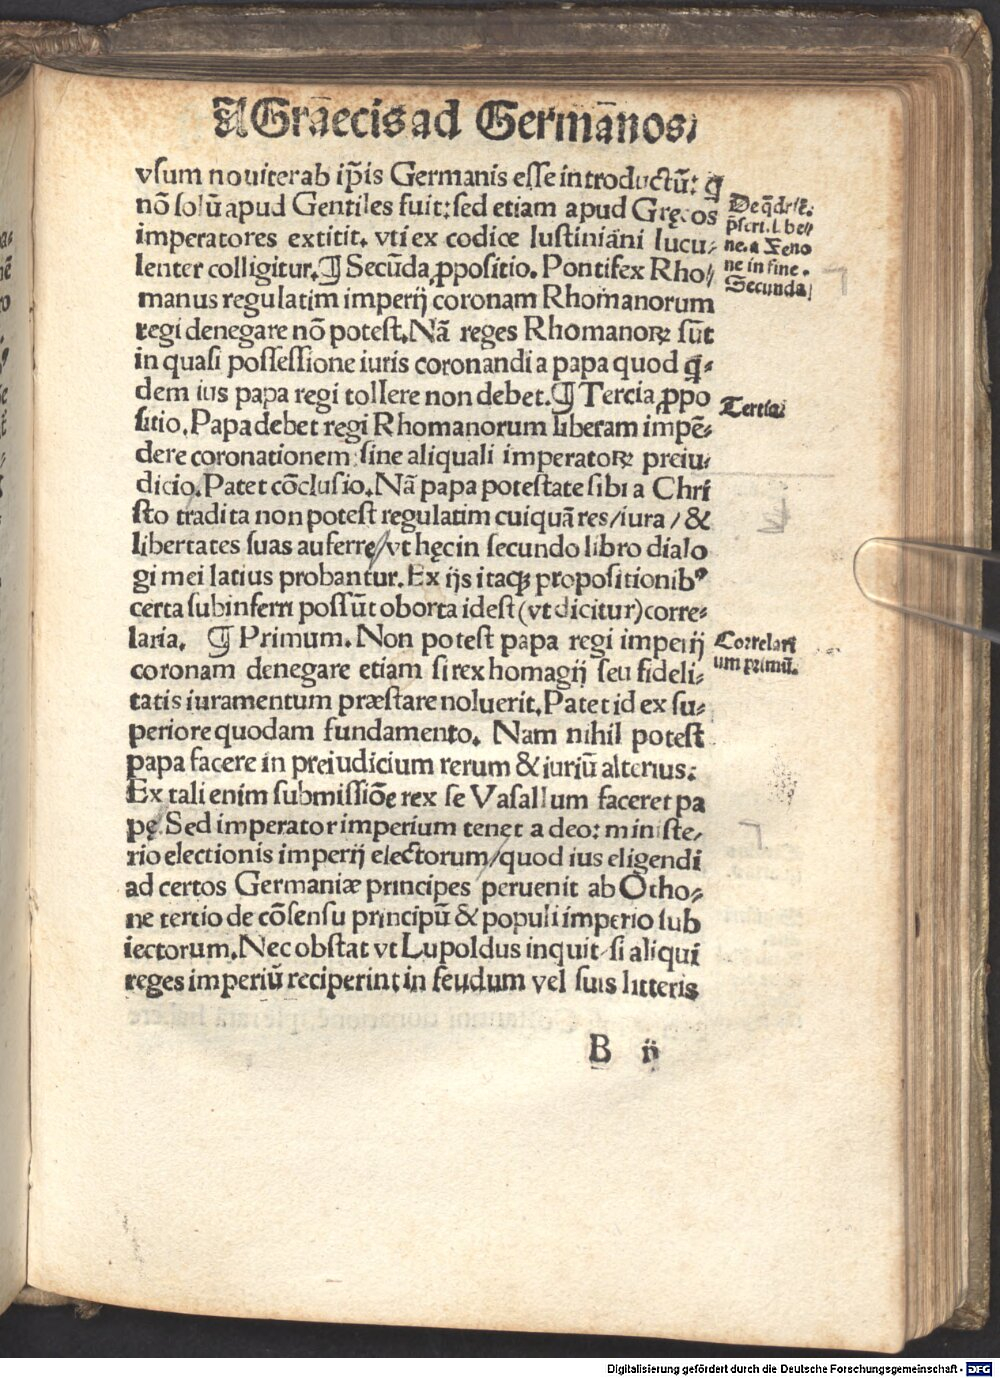 A Graecis ad Germanos.
vsum nouiter ab ip̃is Germanis esse introductũ: q̃
nõ solũ apud Gentiles fuit: sed etiam apud Gręcos
imperatores extitit. vti ex codice Iustiniani lucu-
lenter colligitur. ¶ Secũda ꝓpositio. Pontifex Rho-
manus regulatim imperij coronam Rhomanorum
regi denegare nõ potest. Nã reges Rhomanoꝝ sũt
in quasi possessione iuris coronandi a papa quod q̃-
dem ius papa regi tollere non debet. ¶ Tercia ꝓpo
sitio. Papa debet regi Rhomanorum liberam impẽ-
dere coronationem sine aliquali imperatoꝝ preiu-
dicio. Patet cõclusio. Nã papa potestate sibi a Chri
sto tradita non potest regulatim cuiquã res/iura/&
libertates suas auferre/vt hęc in secundo libro dialo
gi mei latius probantur. Ex ijs itaqꝫ propositionibꝰ
certa subinferri possũt oborta idest (vt dicitur) corre-
laria. ¶ Primum. Non potest papa regi imperij
coronam denegare etiam si rex homagij seu fideli-
tatis iuramentum præstare noluerit. Patet id ex su-
periore quodam fundamento. Nam nihil potest
papa facere in preiudicium rerum & iuriũ alterius.
Ex tali enim submissiõe rex se Vasallum faceret pa
pę. Sed imperator imperium tenet a deo: ministe-
rio electionis imperij electorum/quod ius eligendi
ad certos Germaniæ principes peruenit ab Otho-
ne tertio de cõsensu principũ & populi imperio sub
iectorum. Nec obstat vt Lupoldus inquit si aliqui
reges imperiũ reciperint in feudum vel suis litteris
B ij
ne. a Zeno
ne in fine.
Secunda
Tertia
Correlari
um primũ.
Digitalisierung gefördert durch die Deutsche Forschungsgemeinschaft - DFG